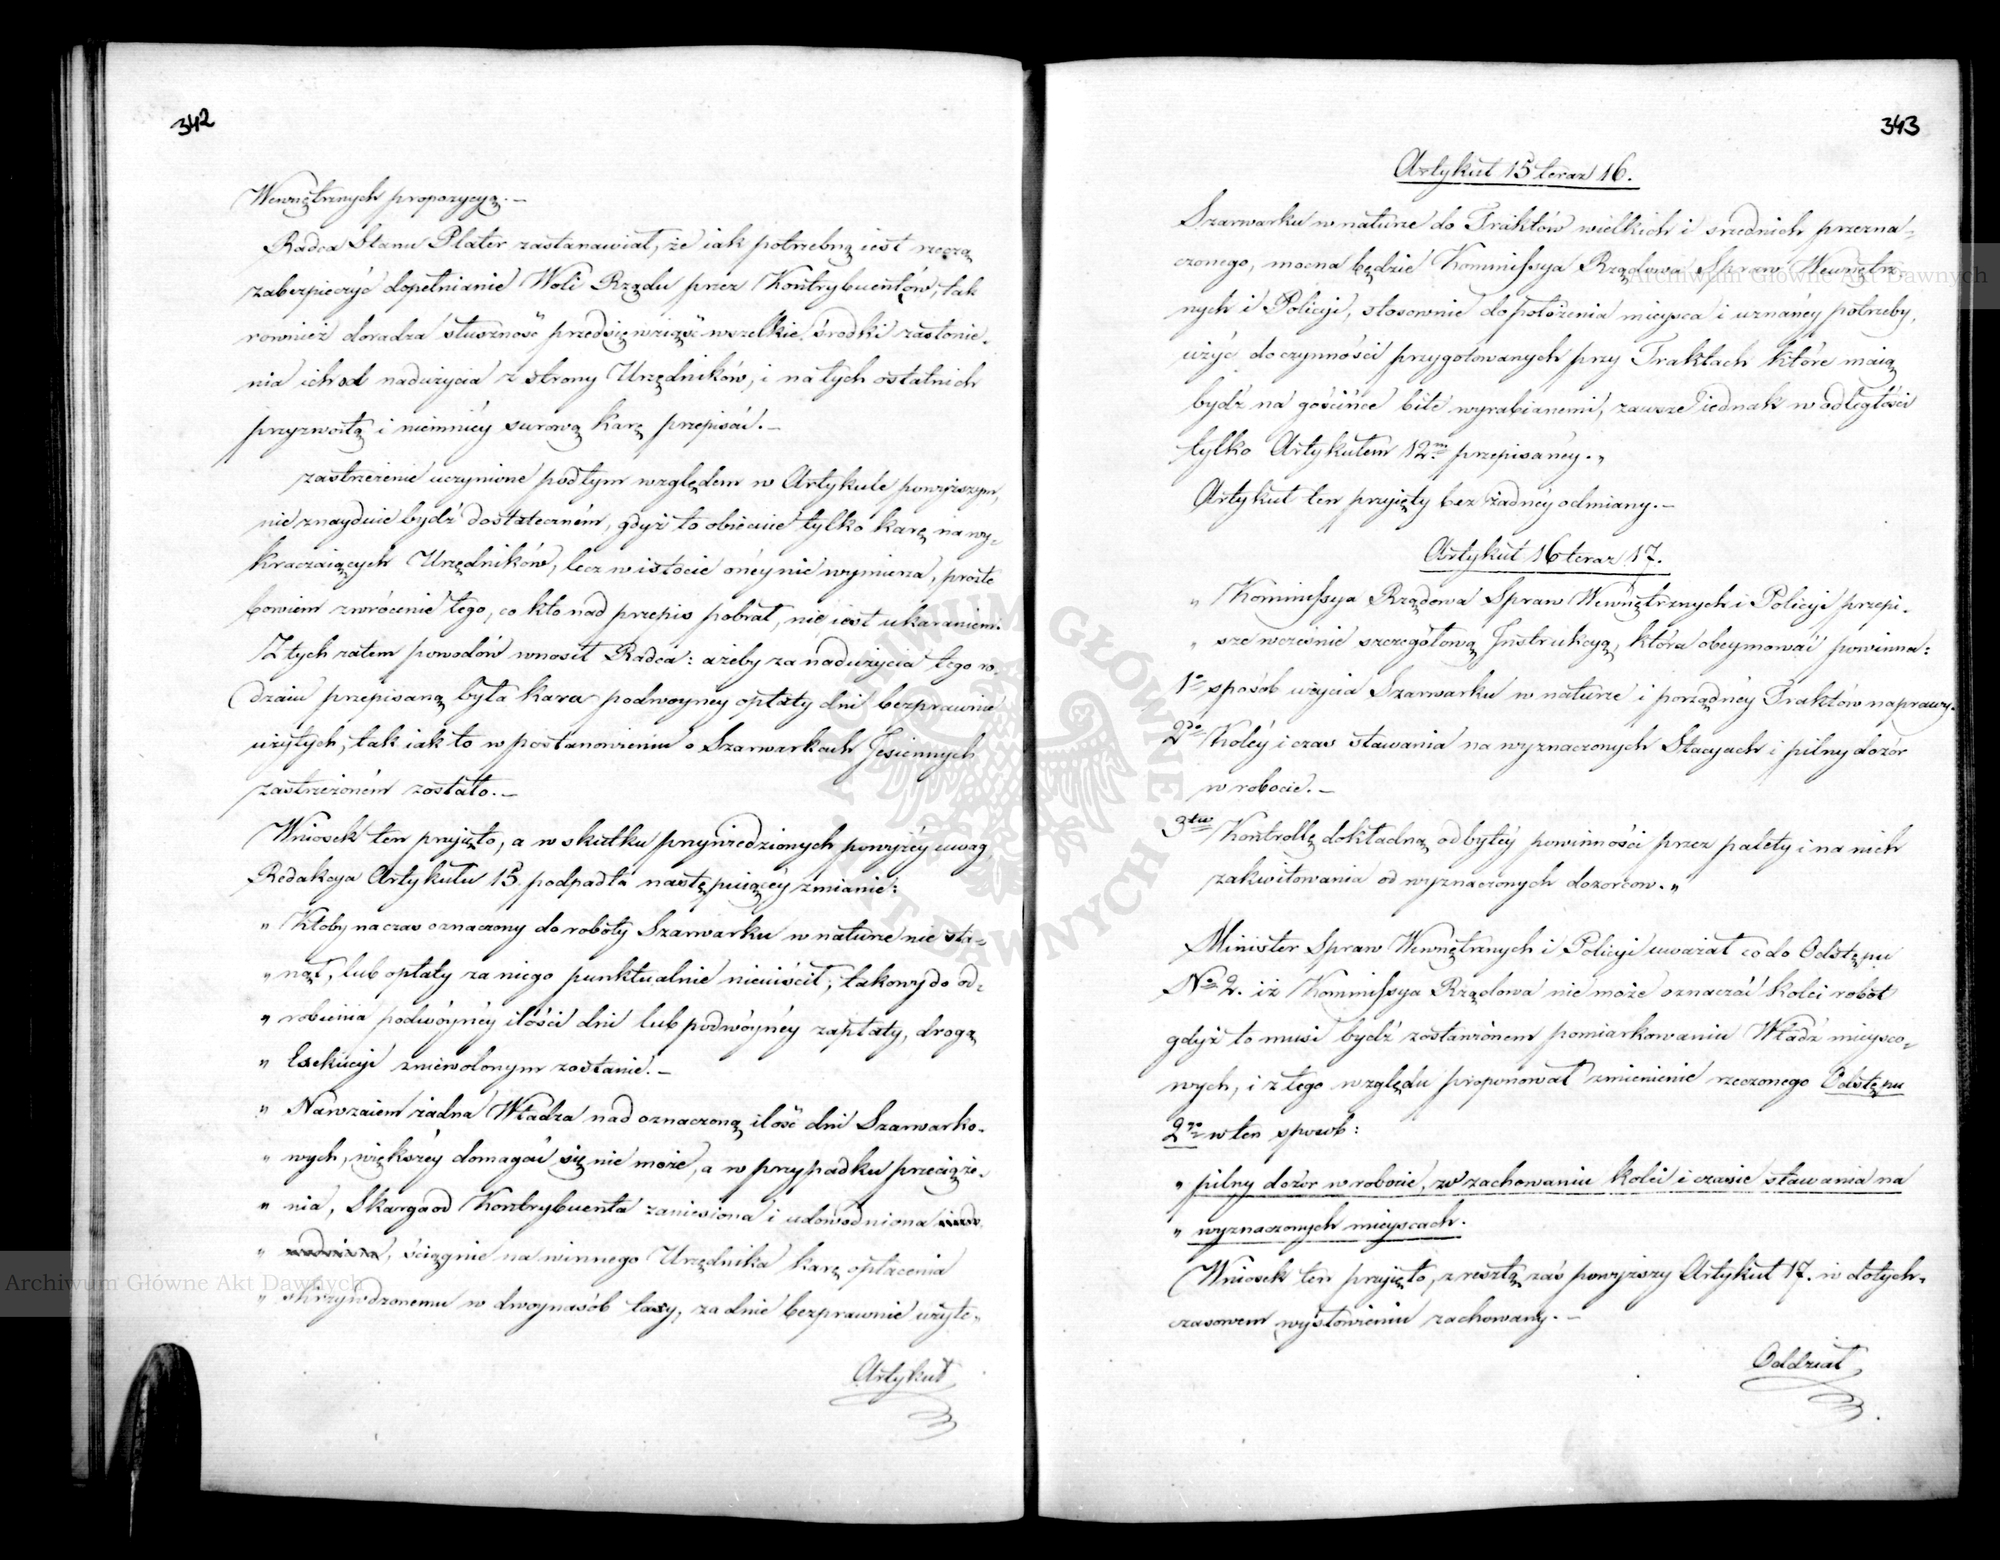 342
Wewnętrznych propozycyą. —
Radca Stanu Plater zastanawiał, że iak potrzebną iest rzeczą
zabezpieczyć dopełnianie Woli Rządu przez Kontrybuentów, tak
rownież doradza słuszność przedsięwziąść wszelkie środki zasłonie-
nia ich od nadużycia z strony Urzędników, i na tych ostatnich
przyzwoitą i niemniéy surową karę przepisać. —
zastrzeżenie uczynione pod tym względem w Artykule powyższym,
nie znayduie bydź dostateczném, gdyż to obiecuie tylko karę na wy-
kraczaiących Urzędników, lecz w istocie onéy nie wymierza, proste
bowiem zwrócenie tego, co kto nad przepis pobrał, nie iest ukaraniem.
Z tych zatem powodów wnosił Radca: ażeby za nadużycia tego ro-
dzaiu przepisaną była kara podwoyney opłaty dni bezprawnie
użytych, tak iak to w postanowieniu o Szarwarkach Jesiennych
zastrzeżoném zostało. —
Wniosek ten przyięto, a w skutku przywiedzionych powyżéy uwag
Redakcya Artykułu 15. podpadła następuiącéy zmianie:
„ Ktoby na czas oznaczony do roboty Szarwarku w naturze nie sta-
„ nął, lub opłaty za niego punktualnie nieuiścił, takowy do od-
„ robienia podwóynéy ilości dni lub podwóynéy zapłaty, drogą
„ Exekucyi zniewolonym zostanie. —
„ Nawzaiem żadna Władza nad oznaczoną ilość dni Szarwarko-
„ wych, większéy domagać się nie może, a w przypadku przeciąże-
„ nia, Skarga od Kontrybuenta zaniesiona i udowodniona
„ , ściągnie na winnego Urzędnika karę opłacenia
„ skrzywdzonemu w dwoynasób taxy, za dnie bezprawnie użyte.„
Artykuł
343
Artykuł 15 teraz 16.
Szarwarku w naturze do Traktów wielkich i srednich przezna-
czonego, mocna będzie Kommissya Rządowa Spraw Wewnętrz-
nych i Policyi, stosownie do położenia mieysca i uznanéy potrzeby,
użyć do czynności przygotowanych przy Traktach które maią
bydź na gościńce bite wyrabianemi, zawsze iednak w odległości
tylko Artykułem 12m. przepisanéy.„
Artykuł ten przyięty bez żadnéy odmiany. —
Artykuł 16 teraz 17.
„ Kommissya Rządowa Spraw Wewnętrznych i Policyi przepi-
„ sze wczesnie szczegółową Instrukcyą, która obeymować powinna:
1o sposób użycia Szarwarku w naturze i porządnéy Traktów naprawy.
2do Koléy i czas stawania na wyznaczonych Stacyach i pilny dozór
w robocie. —
3tio Kontrollę dokładną odbytéy powinności przez palety i na nich
zakwitowania od wyznaczonych dozorcow.„
Minister Spraw Wewnętrznych i Policyi uważał co do Odstępu
No 2. iż Kommissya Rządowa nie może oznaczać kolei robót
gdyż to musi bydź zostawionem pomiarkowaniu Władz mieysco-
wych, i z tego względu proponował zmienienie rzeczonego Odstępu
2go w ten sposob:
„ pilny dozór w robocie, w zachowaniu kolei i czasie stawania na
„ wyznaczonych mieyscach.
Wniosek ten przyięto, z resztą zaś powyższy Artykuł 17. w dotych-
czasowem wysłowieniu zachowany. —
Oddział
Archiwum Główne Akt Dawnych
Archiwum Główne Akt Dawnych
ARCHIWUM GŁÓWNE AKT DAWNYCH